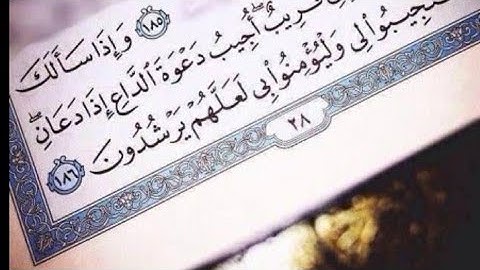 ١٨٥ وَإِذَا سَأَلَكَ
قَرِيبٌ ۖ أُجِيبُ دَعْوَةَ ٱلدَّاعِ إِذَا دَعَانِ ۖ
وَلْيُؤْمِنُوا۟ بِى لَعَلَّهُمْ يَرْشُدُونَ ١٨٦
٢٨